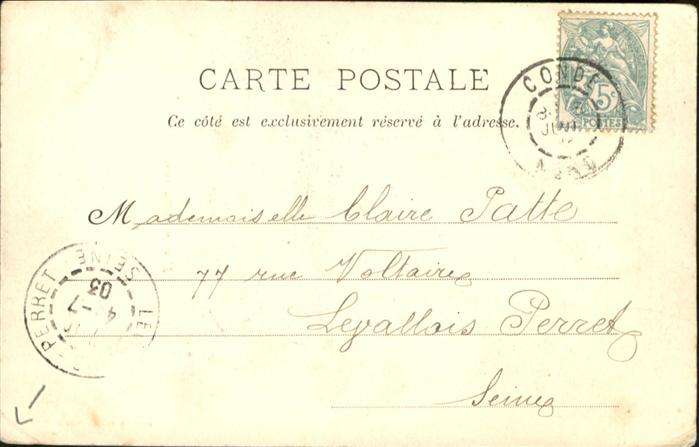 CARTE POSTALE
Ce côté est exclusivement réservé à l'adresse.
CONDÉ
5c
POSTES
Mademoiselle Claire Patte
77 rue Voltaire
Levallois Perret
Seine
PERRET
SEINE
03